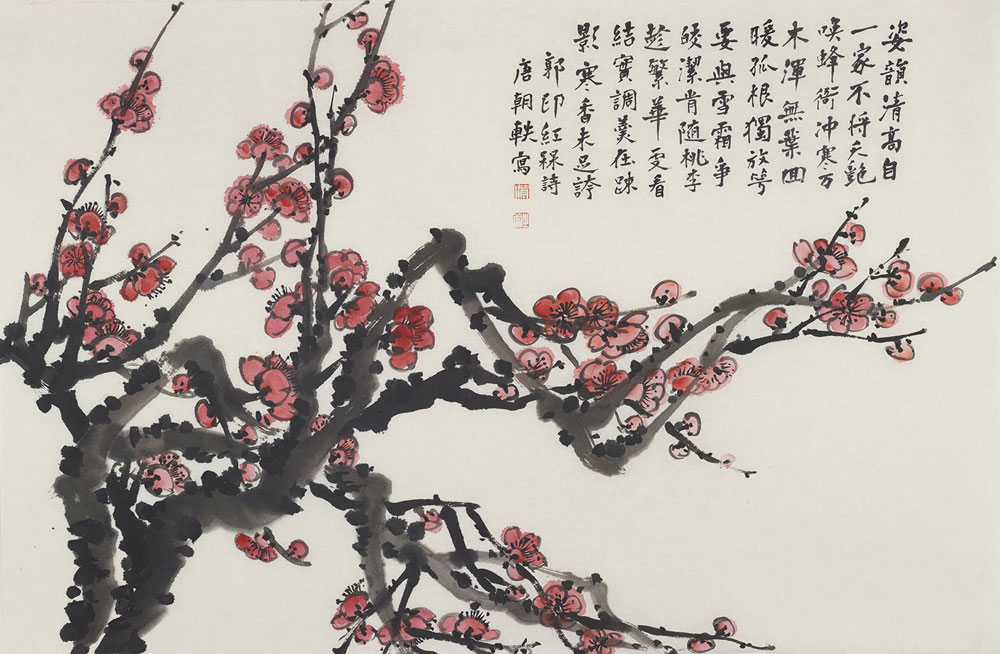 姿韻清高自
一家不將夭艷
喚蜂衙沖寒万
木渾無葉囬
暖孤根獨放花
要與雪霜爭
皎潔肯随桃李
趁繁華更看
結實調羹在踈
影寒香未足誇
郭印紅槑詩
唐朝軼寫